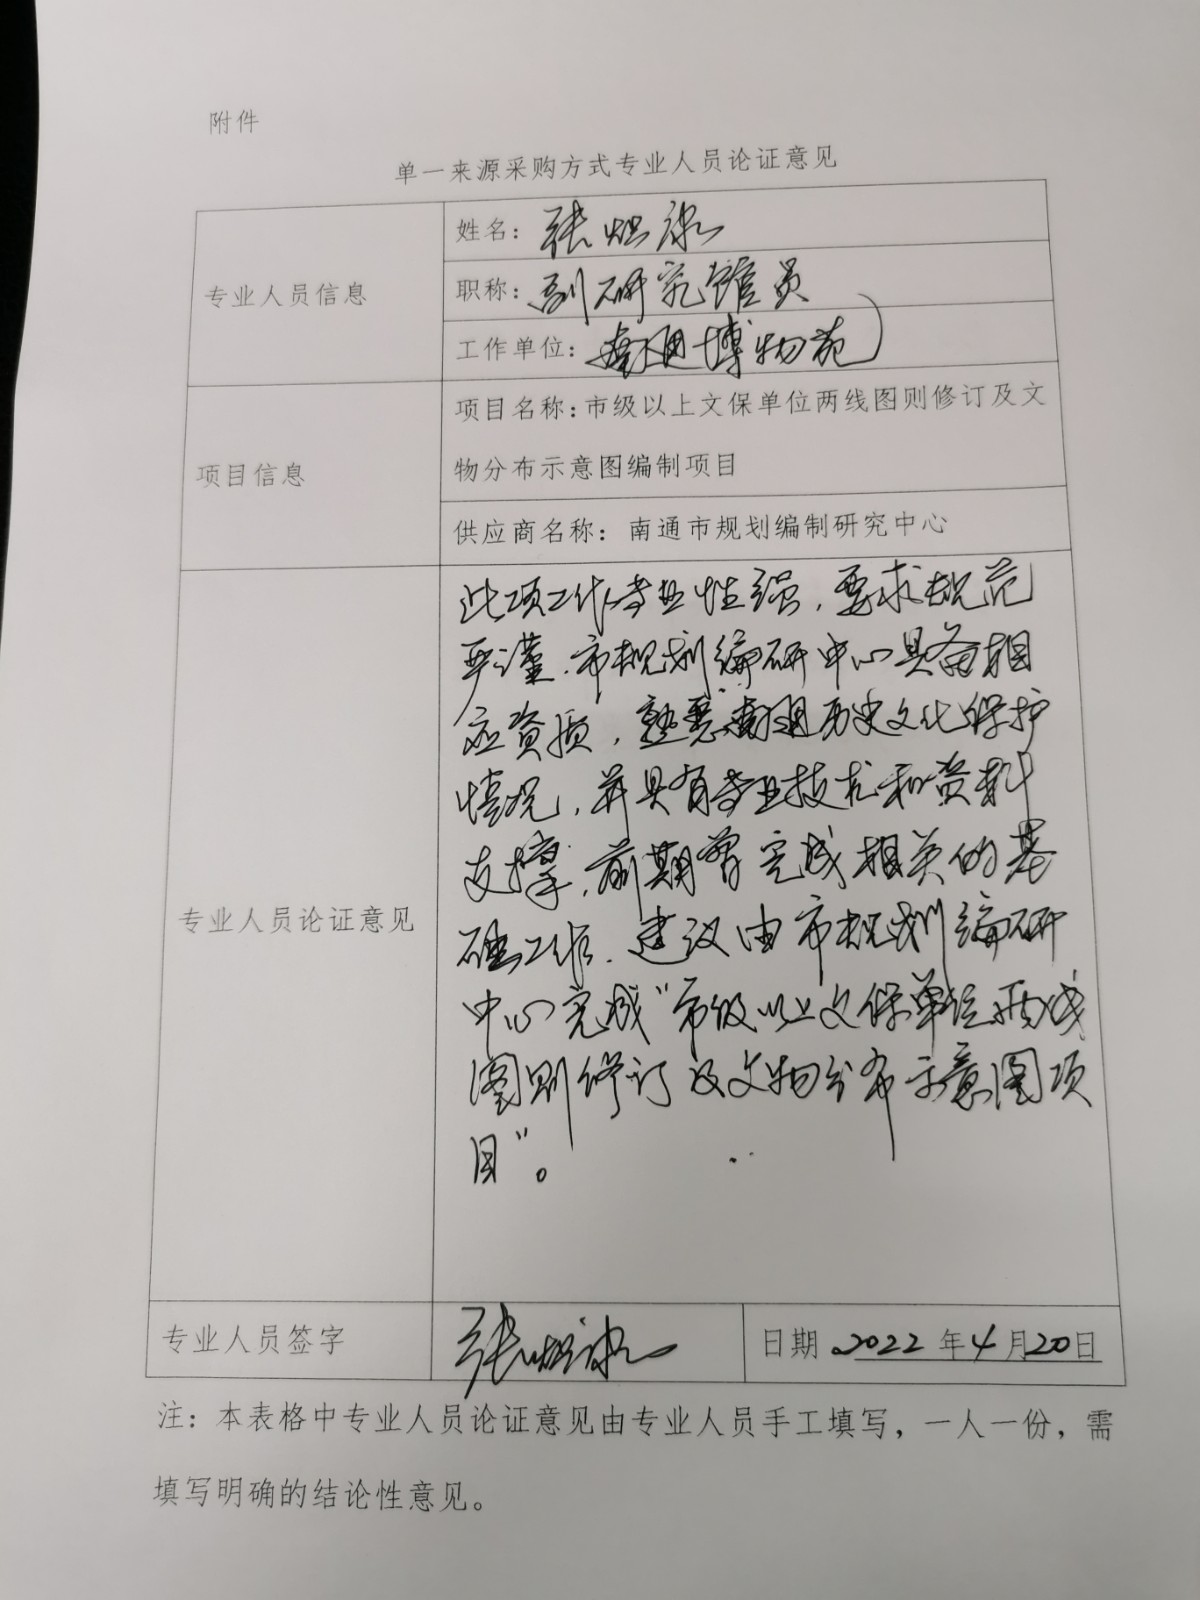 附件
单一来源采购方式专业人员论证意见
专业人员信息
姓名：张
职称：副研究馆员
工作单位：南通博物苑
项目信息
项目名称：市级以上文保单位两线图则修订及文
物分布示意图编制项目
供应商名称：南通市规划编制研究中心
专业人员论证意见
此项工作专业性强，要求规范
严谨，市规划编研中心具备相
应资质，熟悉南通历史文化保护
情况，并具有专业技术和资料
支撑，前期曾完成相关的基
础工作，建议由市规划编研
中心完成“市级以上文保单位两线
图则修订及文物分布示意图项
目”。
专业人员签字
张
日期 2022年4月20日
注：本表格中专业人员论证意见由专业人员手工填写，一人一份，需
填写明确的结论性意见。